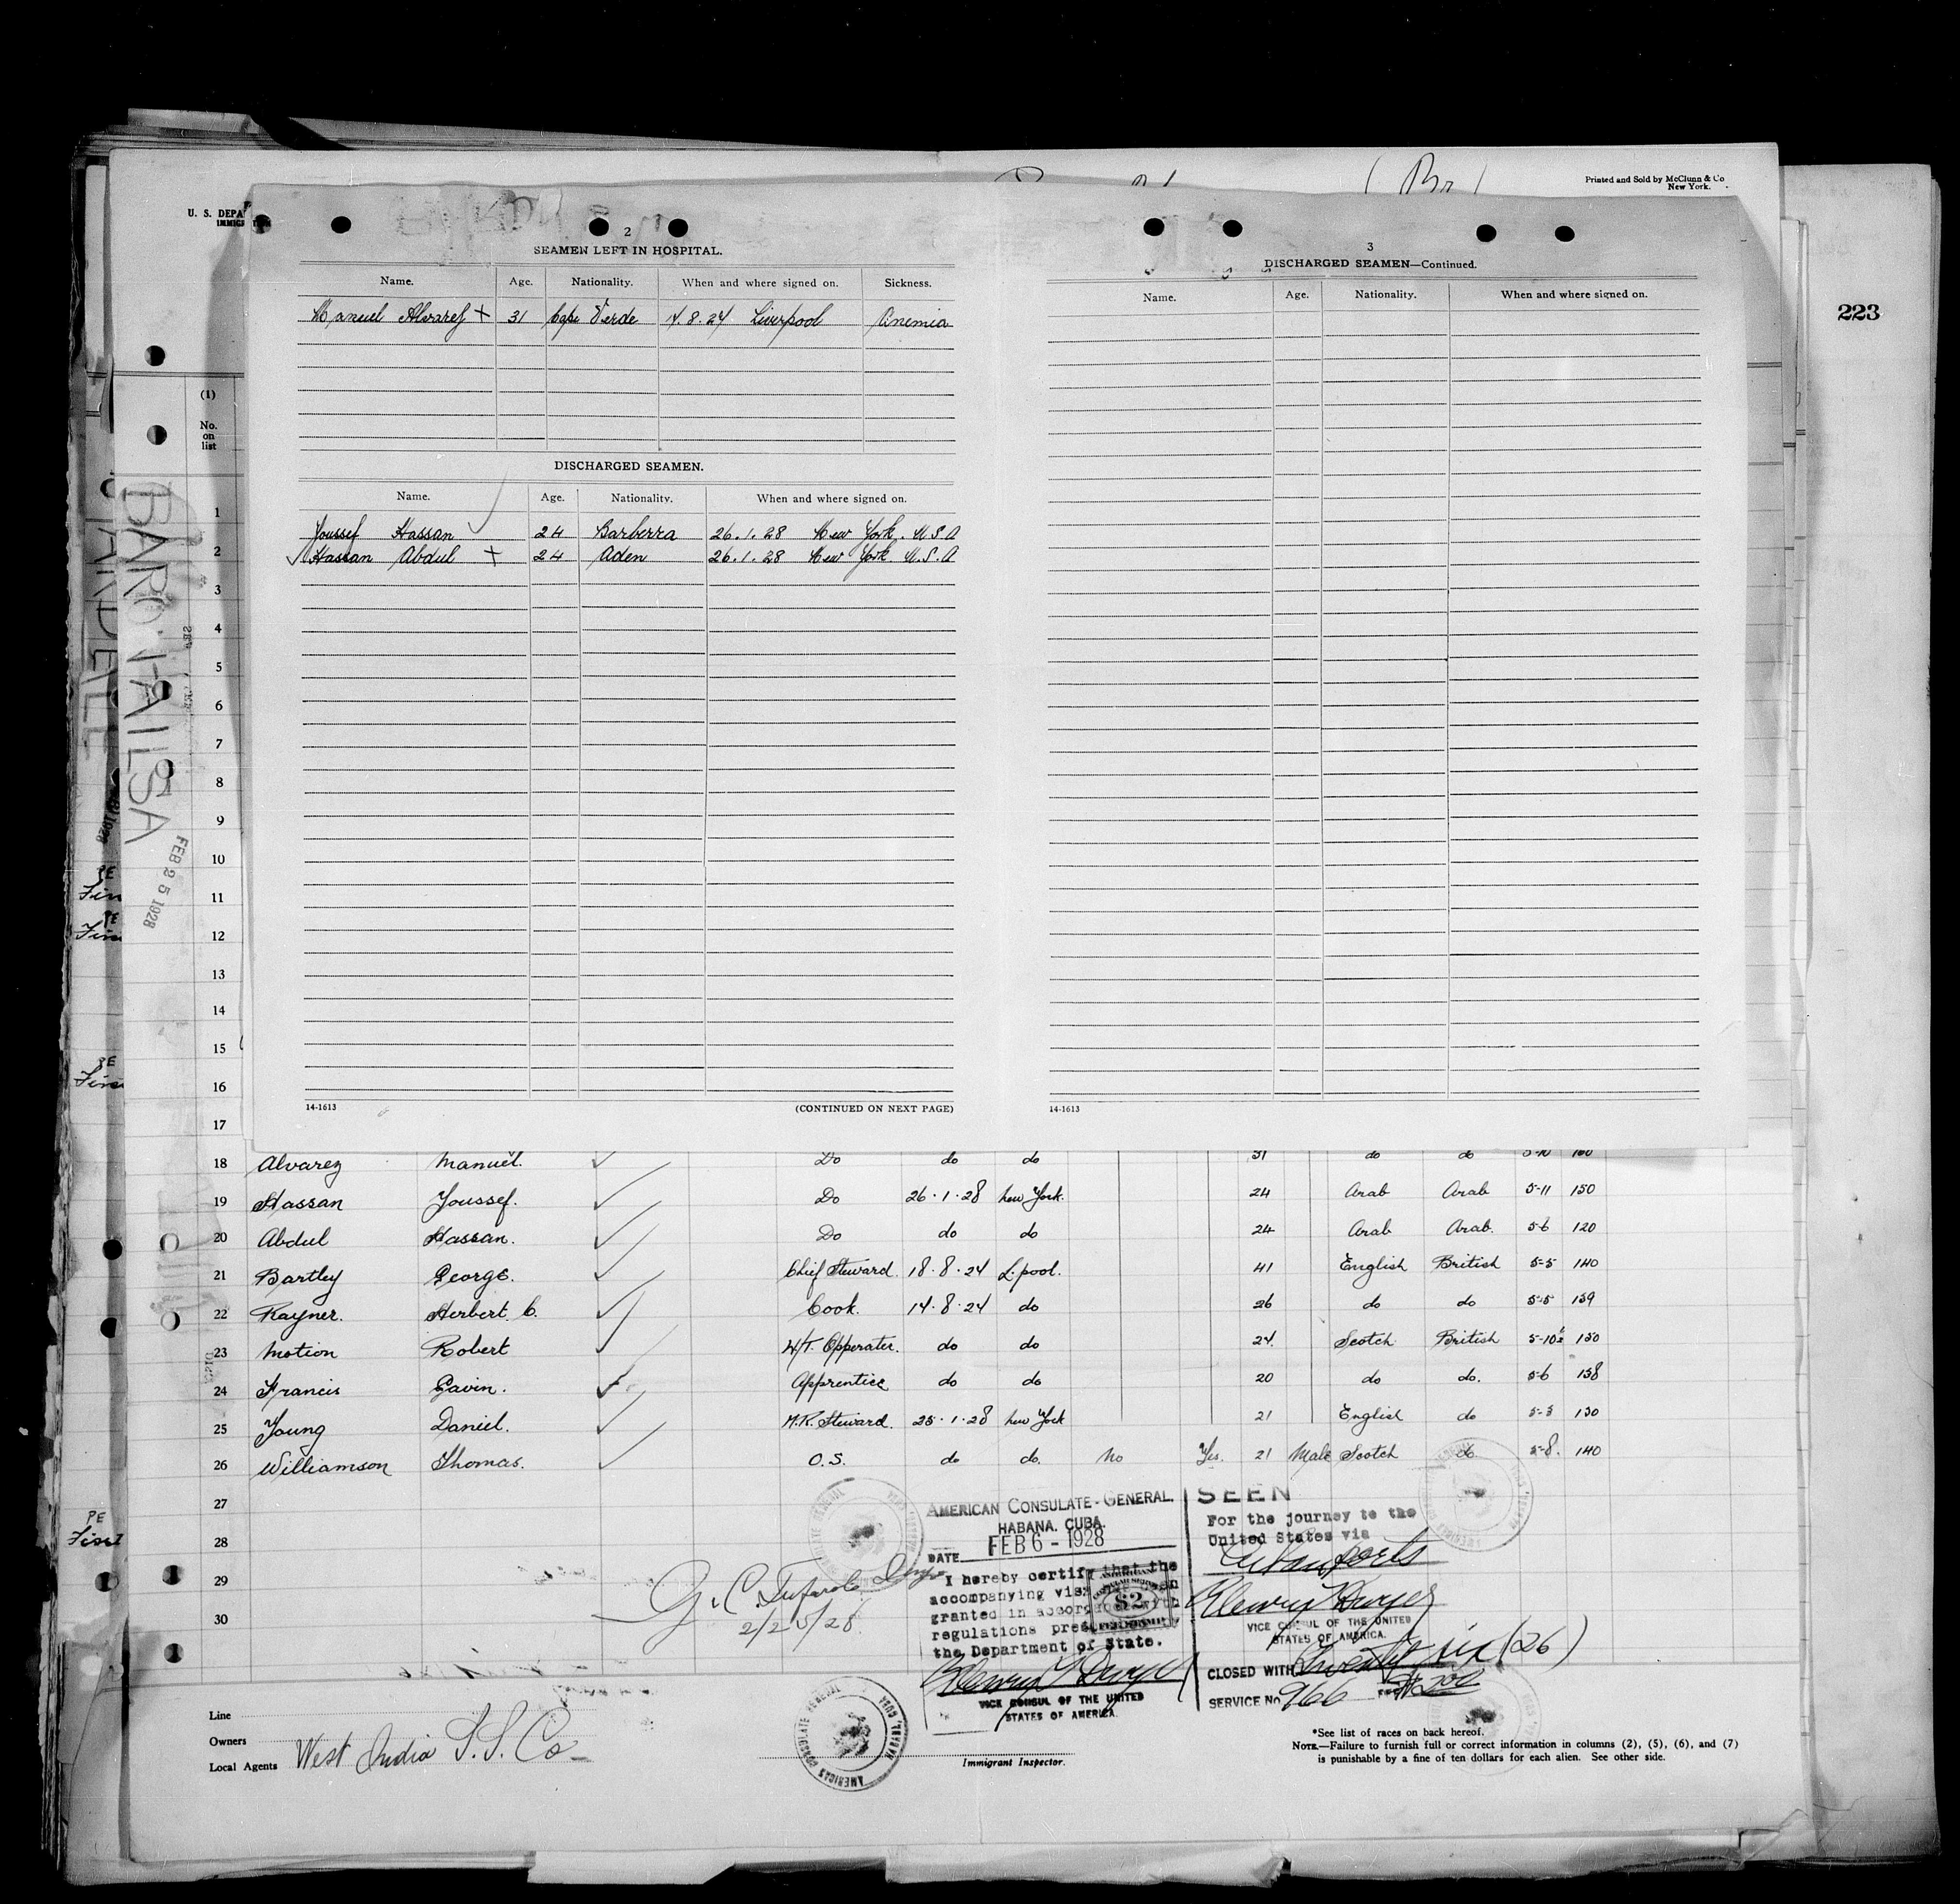 Printed and Sold by McClunn & Co
New York.
U. S. DEPA
IMMIG
223
2
SEAMEN LEFT IN HOSPITAL.
Name. Age. Nationality. When and where signed on. Sickness.
Manuel Alvarez + 31 Cape Verde 14.8.24 Liverpool Anemia
DISCHARGED SEAMEN.
Name. Age. Nationality. When and where signed on.
Youssef Hassan ✓ 24 Barberra 26.1.28 New York. U S A
✓ Hassan Abdul + 24 Aden 26.1.28 New York U.S.A
14-1613 (CONTINUED ON NEXT PAGE)
3
DISCHARGED SEAMEN—Continued.
Name. Age. Nationality. When and where signed on.
14-1613
(1)
No.
on
list
1
2
3
4
5
6
7
8
9
10
11
12
13
14
15
16
17
BARON AILSA
FEB 25 1928
18 Alvarez Manuel. ✓ Do do do 31 do do 5-10 160
19 Hassan Youssef. ✓ Do 26.1.28 New York. 24 Arab Arab 5-11 150
20 Abdul Hassan. ✓ Do do do 24 Arab Arab. 5-6 120
21 Bartley George. ✓ Chief Steward. 18.8.24 L.pool. 41 English British 5-5 140
22 Rayner. Herbert. C. ✓ Cook. 14.8.24 do 26 do do 5-5 139
23 Motion Robert ✓ W/T. Opperater. do do 24. Scotch British 5-10½ 150
24 Francis Gavin. ✓ Apprentice do do 20 do do. 5-6 138
25 Young Daniel. ✓ M.R. Steward. 25.1.28 New York 21 English do 5-5 130
26 Williamson Thomas. ✓ O.S. do do. No Yes. 21 Male Scotch do 5-8. 140
27
28
29
30
AMERICAN CONSULATE-GENERAL.
HABANA, CUBA.
DATE FEB 6 - 1928
I hereby certify that the
accompanying visa has been
granted in accordance with
regulations prescribed by
the Department of State.
VICE CONSUL OF THE UNITED
STATES OF AMERICA.
$2
SEEN
For the journey to the
United States via
Cuban ports
VICE CONSUL OF THE UNITED
STATES OF AMERICA.
CLOSED WITH Twenty six (26)
SERVICE No. 966
2/25/28
AMERICAN CONSULATE GENERAL HABANA, CUBA
Line
Owners
Local Agents West India S.S. Co
Immigrant Inspector.
*See list of races on back hereof.
NOTE.—Failure to furnish full or correct information in columns (2), (5), (6), and (7)
is punishable by a fine of ten dollars for each alien. See other side.